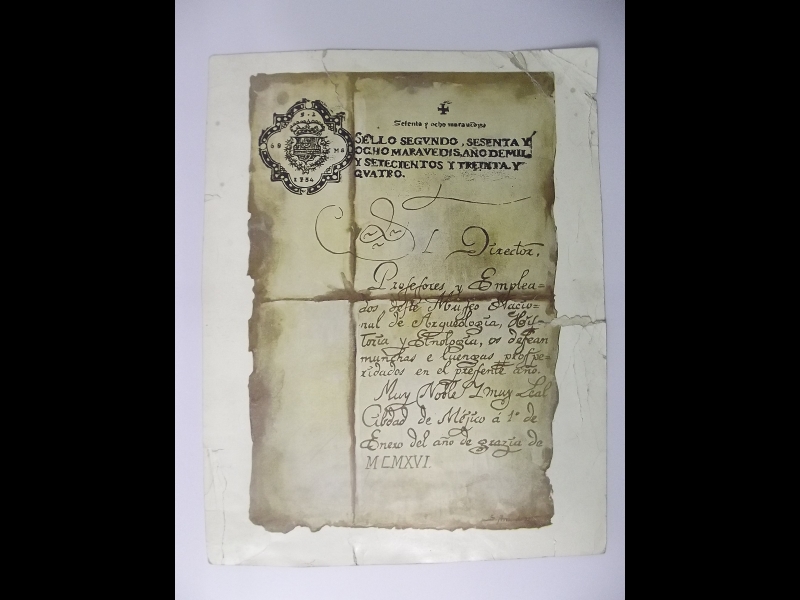 Setenta y ocho maravedis
SELLO SEGVNDO, SESENTA Y
OCHO MARAVEDIS, AÑO DE MIL
Y SETECIENTOS Y TREINTA, Y
QVATRO.
1734
El Director,
Profesores, y Emplea=
dos deste Museo Nacio=
nal de Arqueología, His-
toria y Etnología, os desean
munchas e luengas prospe=
ridades en el presente año.
Muy Noble Y muy Leal
Cibdad de Méjico á 1º de
Enero del año de grazia de
MCMXVI.